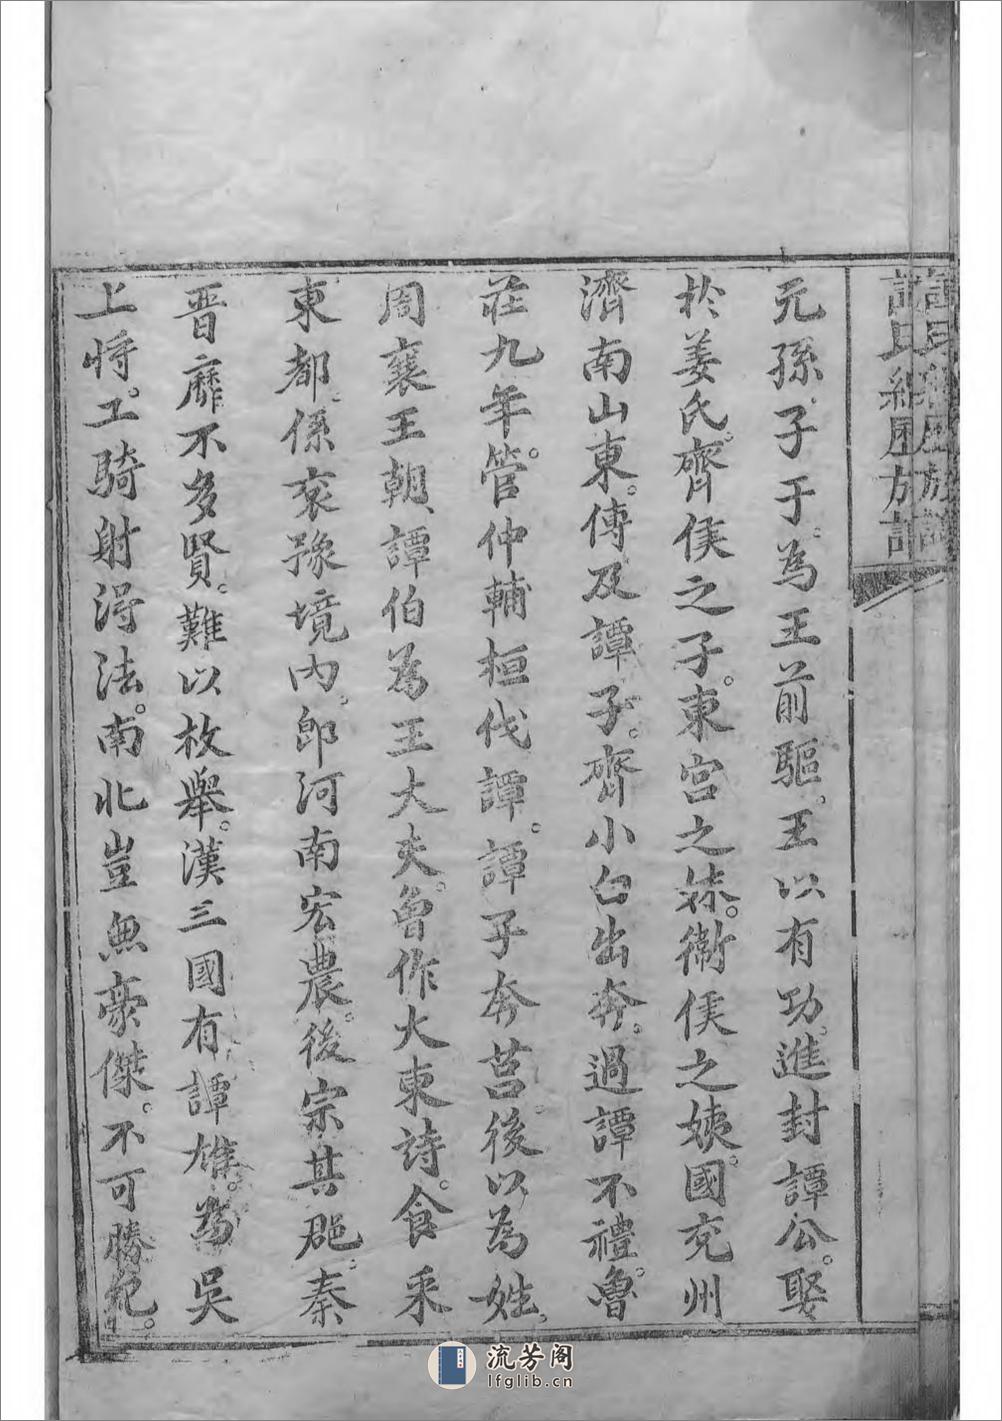 元孫子于。為王前驅。王以有功。進封譚公。娶
於姜氏。齊侯之子。東宮之妹。衛侯之姨。國兗州
濟南山東。傳及譚子。齊小白出奔。過譚不禮。魯
莊九年。管仲輔桓伐譚。譚子奔莒。後以為姓。
周襄王朝、譚伯為王大夫。魯作大東詩。食釆
東都。係兗豫境內。即河南宏農。後宗其郡。秦
晋靡不多賢。難以枚舉。漢三國有譚雄。為吳
上将。工騎射淂法。南北豈無豪傑。不可勝紀。
流芳阁
lfglib.cn